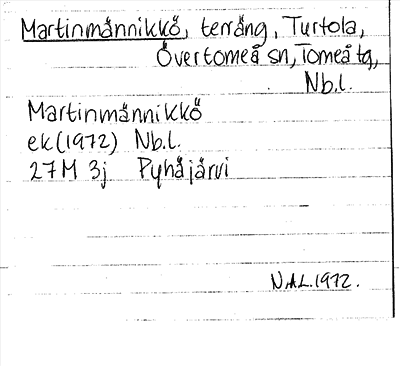 Martinmännikkö, terräng, Turtola,
Övertorneå sn, Torneå tg,
Nb.l.
Martinmännikkö
ek(1972) Nb.l.
27M 3j Pyhäjärvi
N.A.L.1972.